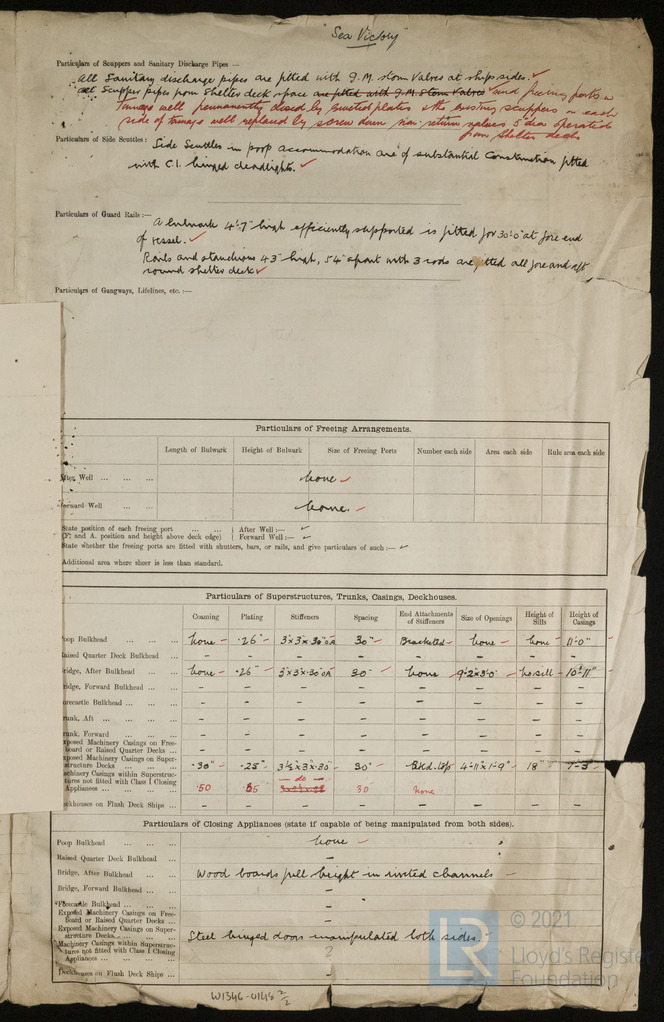 "Sea Victory"
Particulars of Scuppers and Sanitary Discharge Pipes —
All Sanitary discharge pipes are fitted with G.M. storm Valves at ships sides. ✓
All Scupper pipes from Shelter deck space are fitted with G.M. Storm Valves and freeing ports in
tonnage well permanently closed by riveted plates & the existing scuppers on each
side of tonnage well replaced by screw down non-return valves 5" dia operated
from Shelter deck
Particulars of Side Scuttles:
Side Scuttles in poop accommodation are of substantial Construction fitted
with C.I. hinged deadlights. ✓
Particulars of Guard Rails:—
A bulwark 4'-7" high efficiently supported is fitted for 30'-0" at fore end
of vessel. ✓
Rails and stanchions 43" high, 54" apart with 3 rods are fitted all fore and aft
round shelter deck ✓
Particulars of Gangways, Lifelines, etc. :—
Particulars of Freeing Arrangements.
Length of Bulwark Height of Bulwark Size of Freeing Ports Number each side Area each side Rule area each side
After Well ... ... ... None ✓
Forward Well ... ... None. ✓
State position of each freeing port ... ... After Well :— ✓
(F. and A. position and height above deck edge) Forward Well :— ✓
State whether the freeing ports are fitted with shutters, bars, or rails, and give particulars of such :— ✓
Additional area where sheer is less than standard.
Particulars of Superstructures, Trunks, Casings, Deckhouses.
Coaming Plating Stiffeners Spacing End Attachments of Stiffeners Size of Openings Height of Sills Height of Casings
Poop Bulkhead ... ... ... None .26" 3"x3"x.30" 30" Bracketed None None 11'-0"
Raised Quarter Deck Bulkhead ... – – – – – – – –
Bridge, After Bulkhead ... ... None .26" 3"x3"x.30" 30" None 9'-2"x3'-0" No sill 10'-11"
Bridge, Forward Bulkhead ... ... – – – – – – – –
Forecastle Bulkhead ... ... ... – – – – – – – –
Trunk, Aft ... ... ... – – – – – – – –
Trunk, Forward ... ... ... – – – – – – – –
Exposed Machinery Casings on Freeboard or Raised Quarter Decks ... – – – – – – – –
Exposed Machinery Casings on Superstructure Decks ... ... ... .30" .25" 3½"x3"x.30" 30" Bkd. top 4'-11"x1'-9" 18" 7'-3"
Machinery Casings within Superstructures not fitted with Class I Closing Appliances ... ... ... .50 do 30 None
Deckhouses on Flush Deck Ships ... – – – – – – – –
Particulars of Closing Appliances (state if capable of being manipulated from both sides).
Poop Bulkhead ... ... ... None
Raised Quarter Deck Bulkhead ... –
Bridge, After Bulkhead ... ... Wood boards full height in riveted channels
Bridge, Forward Bulkhead ... ... –
Forecastle Bulkhead ... ... ... –
Exposed Machinery Casings on Freeboard or Raised Quarter Decks ... –
Exposed Machinery Casings on Superstructure Decks ... ... ... Steel hinged doors manipulated both sides.
Machinery Casings within Superstructures not fitted with Class I Closing Appliances ... ... ... ?
Deckhouses on Flush Deck Ships ... –
W1346-0148 2/2
LR
© 2021
Lloyd's Register
Foundation